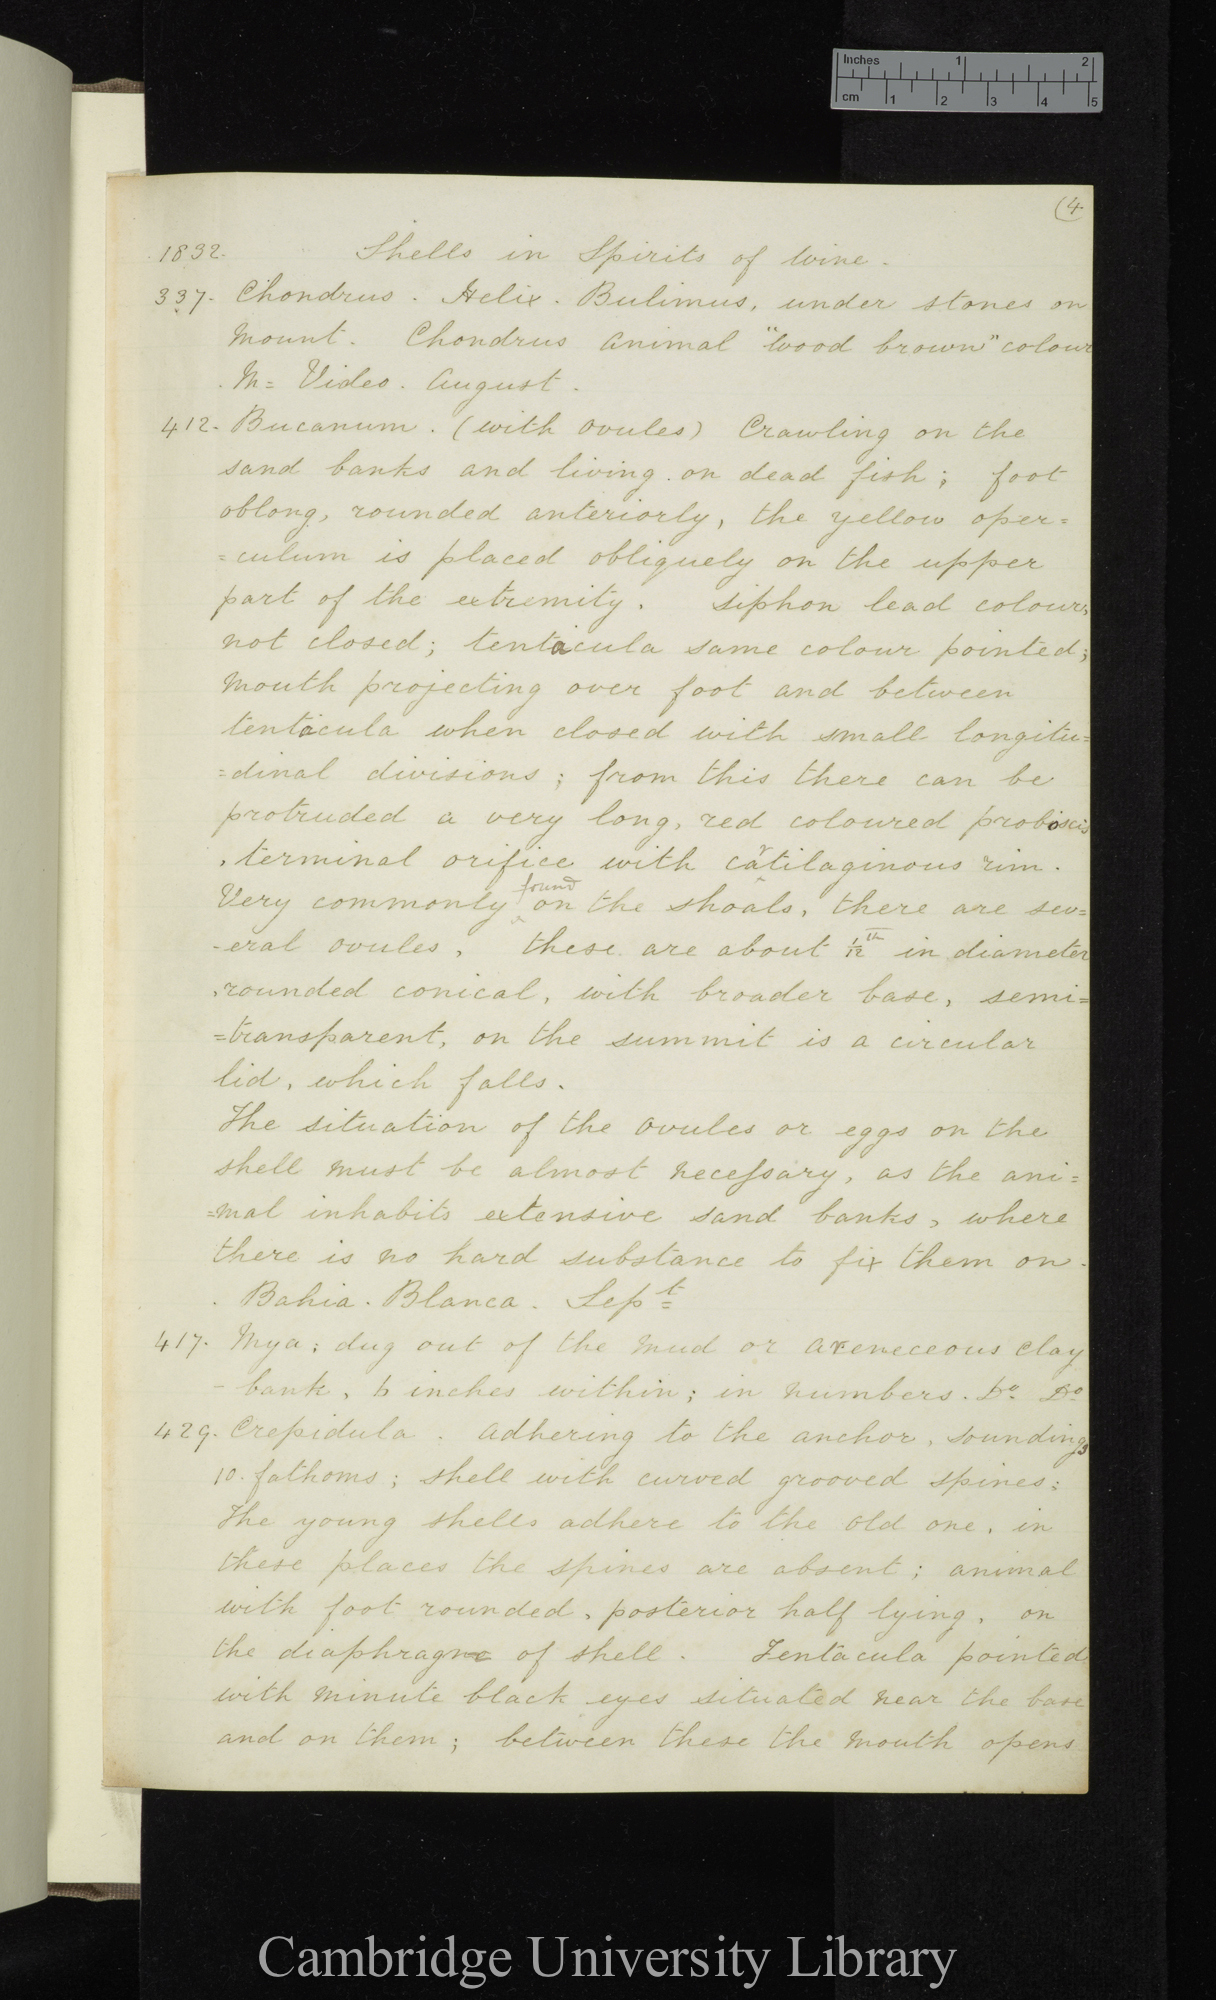 Inches 1 2
cm 1 2 3 4 5
(4
1832. Shells in Spirits of Wine.
337. Chondrus. Helix. Bulimus, under stones on
Mount. Chondrus animal "wood brown" colour
. M= Video. August.
412. Bucanum. (with ovules) Crawling on the
sand banks and living on dead fish; foot
oblong, rounded anteriorly, the yellow oper=
=culum is placed obliquely on the upper
part of the extremity. Siphon lead colour,
not closed; tentacula same colour pointed;
Mouth projecting over foot and between
tentacula when closed with small longitu=
=dinal divisions; from this there can be
protruded a very long, red coloured proboscis
, terminal orifice with catilaginous rim.
Very commonly found on the shoals, there are sev=
-eral ovules, these are about 1/12th in diameter
, rounded conical, with broader base, semi=
=transparent, on the summit is a circular
lid, which falls.
The situation of the ovules or eggs on the
shell must be almost necessary, as the ani=
=mal inhabits extensive sand banks, where
there is no hard substance to fix them on.
. Bahia. Blanca. Sept
417. Mya; dug out of the mud or areneceous clay
- bank, 6 inches within; in numbers. Do. Do.
429. Crepidula. Adhering to the anchor, soundings
10. fathoms; shell with curved grooved spines:
The young shells adhere to the old one, in
these places the spines are absent; animal
with foot rounded, posterior half lying, on
the diaphragm of shell. Tentacula pointed
with minute black eyes situated near the base
and on them; between these the mouth opens
Cambridge University Library